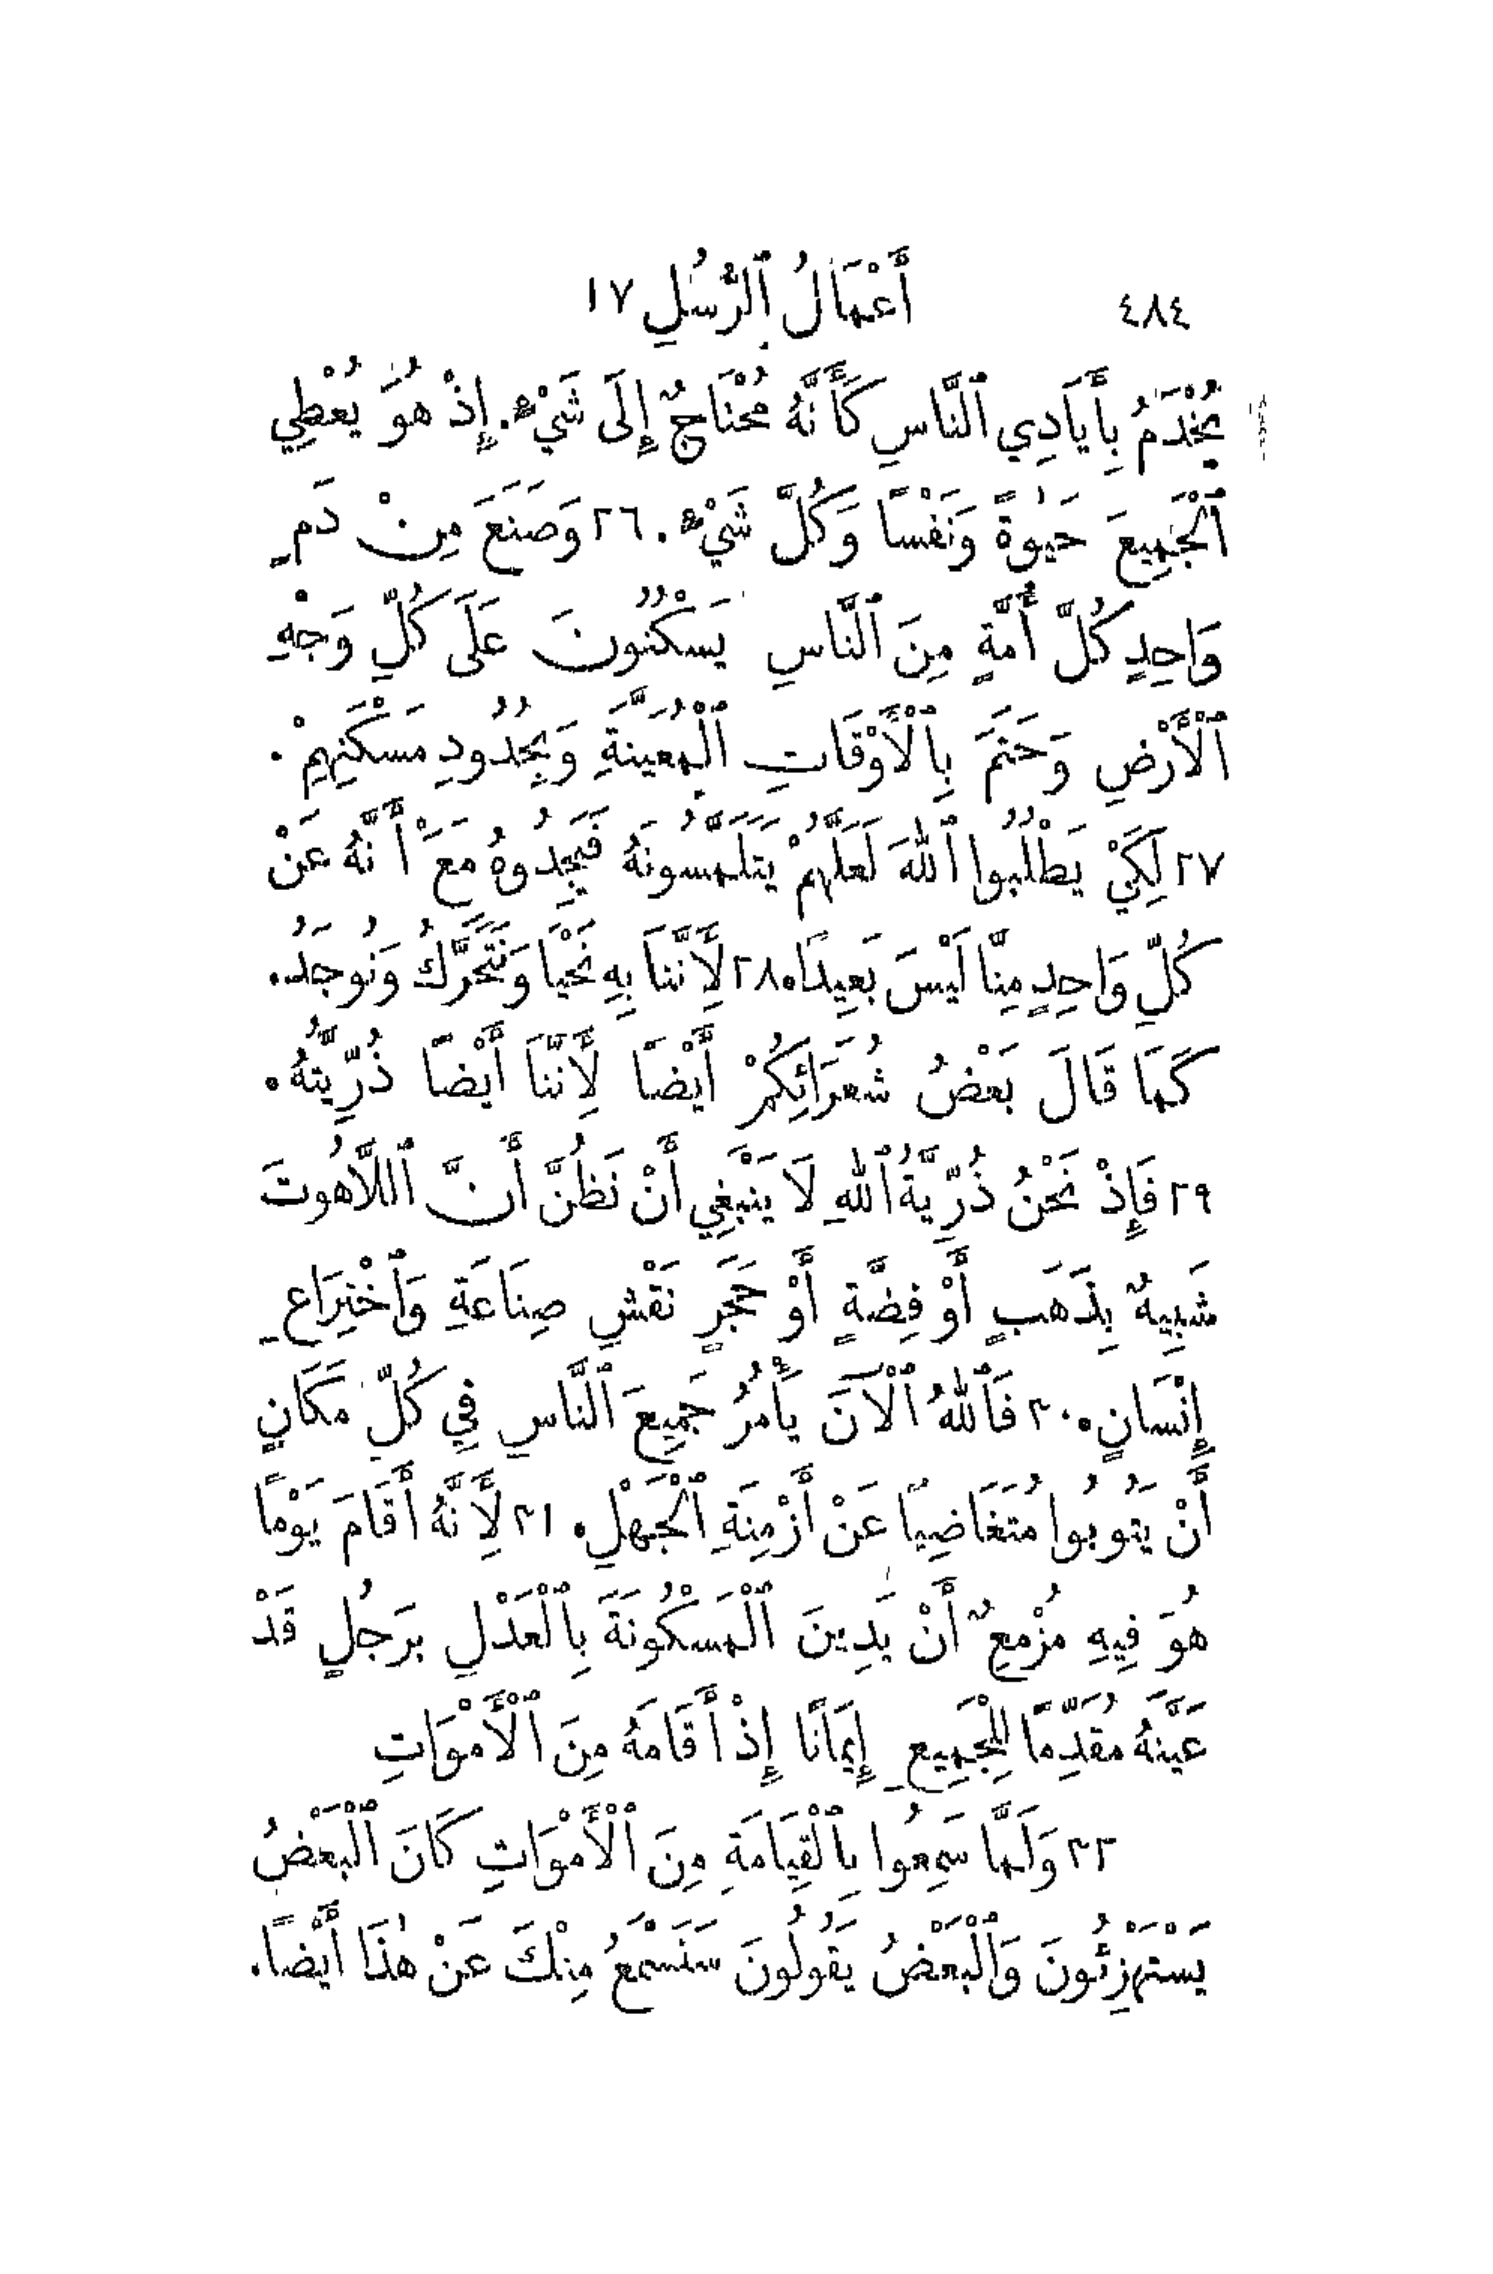 ٤٨٤ أَعْمَالُ ٱلرُّسُلِ ١٧
يُخْدَمُ بِأَيَادِي ٱلنَّاسِ كَأَنَّهُ مُحْتَاجٌ إِلَى شَيْءٍ. إِذْ هُوَ يُعْطِي
ٱلْجَمِيعَ حَيٰوةً وَنَفْسًا وَكُلَّ شَيْءٍ. ٢٦ وَصَنَعَ مِنْ دَمٍ
وَاحِدٍ كُلَّ أُمَّةٍ مِنَ ٱلنَّاسِ يَسْكُنُونَ عَلَى كُلِّ وَجْهِ
ٱلْأَرْضِ وَحَتَمَ بِٱلْأَوْقَاتِ ٱلْمُعَيَّنَةِ وَبِحُدُودِ مَسْكَنِهِمْ.
٢٧ لِكَيْ يَطْلُبُوا ٱللهَ لَعَلَّهُمْ يَتَلَمَّسُونَهُ فَيَجِدُوهُ مَعَ أَنَّهُ عَنْ
كُلِّ وَاحِدٍ مِنَّا لَيْسَ بَعِيدًا. ٢٨ لِأَنَّنَا بِهِ نَحْيَا وَنَتَحَرَّكُ وَنُوجَدُ.
كَمَا قَالَ بَعْضُ شُعَرَائِكُمْ أَيْضًا لِأَنَّنَا أَيْضًا ذُرِّيَّتُهُ.
٢٩ فَإِذْ نَحْنُ ذُرِّيَّةُ ٱللهِ لَا يَنْبَغِي أَنْ نَظُنَّ أَنَّ ٱللَّاهُوتَ
شَبِيهٌ بِذَهَبٍ أَوْ فِضَّةٍ أَوْ حَجَرٍ نَقْشِ صِنَاعَةِ وَٱخْتِرَاعِ
إِنْسَانٍ. ٣٠ فَٱللهُ ٱلْآنَ يَأْمُرُ جَمِيعَ ٱلنَّاسِ فِي كُلِّ مَكَانٍ
أَنْ يَتُوبُوا مُتَغَاضِيًا عَنْ أَزْمِنَةِ ٱلْجَهْلِ. ٣١ لِأَنَّهُ أَقَامَ يَوْمًا
هُوَ فِيهِ مُزْمِعٌ أَنْ يَدِينَ ٱلْمَسْكُونَةَ بِٱلْعَدْلِ بِرَجُلٍ قَدْ
عَيَّنَهُ مُقَدِّمًا لِلْجَمِيعِ إِيمَانًا إِذْ أَقَامَهُ مِنَ ٱلْأَمْوَاتِ
٣٢ وَلَمَّا سَمِعُوا بِٱلْقِيَامَةِ مِنَ ٱلْأَمْوَاتِ كَانَ ٱلْبَعْضُ
يَسْتَهْزِئُونَ وَٱلْبَعْضُ يَقُولُونَ سَنَسْمَعُ مِنْكَ عَنْ هٰذَا أَيْضًا.